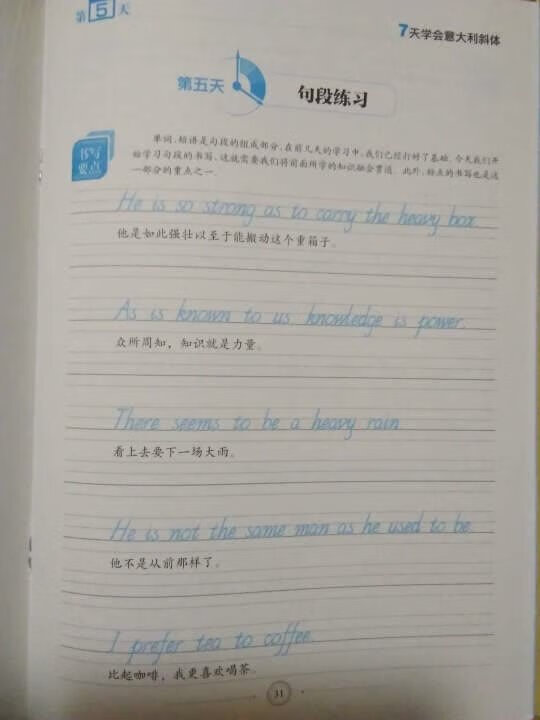 第5天
7天学会意大利斜体
第五天
句段练习
书写
要点
单词、短语是句段的组成部分，在前几天的学习中，我们已经打好了基础，今天我们开
始学习句段的书写，这就需要我们将前面所学的知识融会贯通。此外，标点的书写也是这
一部分的重点之一。
He is so strong as to carry the heavy box.
他是如此强壮以至于能搬动这个重箱子。
As is known to us, knowledge is power.
众所周知，知识就是力量。
There seems to be a heavy rain.
看上去要下一场大雨。
He is not the same man as he used to be.
他不是从前那样了。
I prefer tea to coffee.
比起咖啡，我更喜欢喝茶。
31